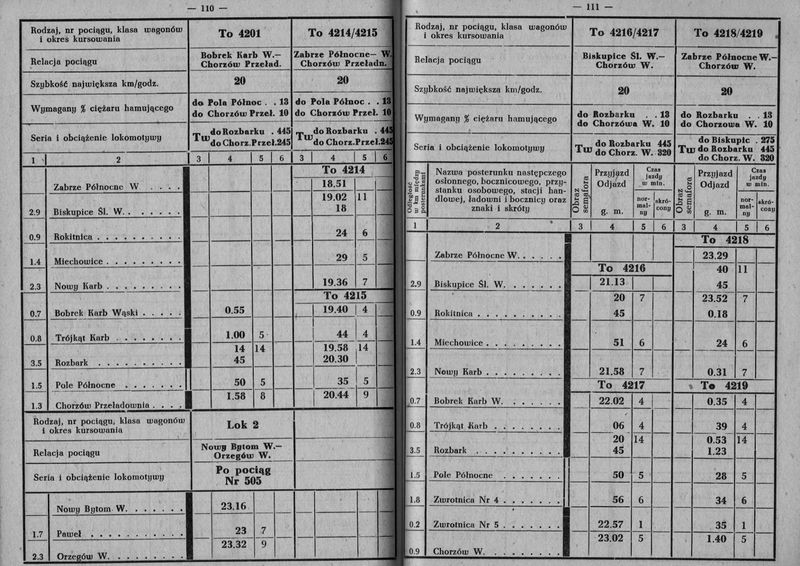 — 110 —
Rodzaj, nr pociągu, klasa wagonów i okres kursowania | To 4201 | To 4214/4215
Relacja pociągu | Bobrek Karb W.— Chorzów Przeład. | Zabrze Północne— W. Chorzów Przeładn.
Szybkość największa km/godz. | 20 | 20
Wymagany % ciężaru hamującego | do Pola Północ . . 13 | do Pola Północ . . 13
do Chorzów Przeł. 10 | do Chorzów Przeł. 10
Seria i obciążenie lokomotywy | Tw do Rozbarku . 445 | Tw do Rozbarku . 445
do Chorz.Przeł.245 | do Chorz.Przeł.245
1 | 2 | 3 | 4 | 5 | 6 | 3 | 4 | 5 | 6
To 4214
Zabrze Północne W . . . . . | 18.51
19.02 | 11
2.9 | Biskupice Śl. W. . . . . . . | 18
0.9 | Rokitnica . . . . . . . . . . | 24 | 6
1.4 | Miechowice . . . . . . . . . | 29 | 5
2.3 | Nowy Karb . . . . . . . . . | 19.36 | 7
To 4215
0.7 | Bobrek Karb Wąski . . . . . | 0.55 | 19.40 | 4
0.8 | Trójkąt Karb . . . . . . . . | 1.00 | 5 | 44 | 4
14 | 14 | 19.58 | 14
3.5 | Rozbark . . . . . . . . . . | 45 | 20.30
1.5 | Pole Północne . . . . . . . | 50 | 5 | 35 | 5
1.58 | 8 | 20.44 | 9
1.3 | Chorzów Przeładownia . . . .
Rodzaj, nr pociągu, klasa wagonów i okres kursowania | Lok 2
Relacja pociągu | Nowy Bytom W.— Orzegów W.
Seria i obciążenie lokomotywy | Po pociąg Nr 505
Nowy Bytom W. . . . . . . | 23.16
1.7 | Paweł . . . . . . . . . . . | 23 | 7
23.32 | 9
2.3 | Orzegów W. . . . . . . . .
— 111 —
Rodzaj, nr pociągu, klasa wagonów i okres kursowania | To 4216/4217 | To 4218/4219
Relacja pociągu | Biskupice Śl. W.— Chorzów W. | Zabrze Północne W.— Chorzów W.
Szybkość największa km/godz. | 20 | 20
Wymagany % ciężaru hamującego | do Rozbarku . . 13 | do Rozbarku . . 13
do Chorzówa W. 10 | do Chorzowa W. 10
Seria i obciążenie lokomotywy | Tw do Rozbarku 445 do Chorz. W. 320 | Tw do Biskupic . 275 do Rozbarku 445 do Chorz. W. 320
Odległość w km między posterunkami | Nazwa posterunku następczego osłonnego, bocznicowego, przystanku osobowego, stacji handlowej, ładowni i bocznicy oraz znaki i skróty | Obraz semafora | Przyjazd Odjazd g. m. | Czas jazdy w min. normalny | skrócony | Obraz semafora | Przyjazd Odjazd g. m. | Czas jazdy w min. normalny | skrócony
1 | 2 | 3 | 4 | 5 | 6 | 3 | 4 | 5 | 6
To 4218
Zabrze Północne W. . . . . . | 23.29
To 4216 | 40 | 11
2.9 | Biskupice Śl. W. . . . . . . | 21.13 | 45
20 | 7 | 23.52 | 7
0.9 | Rokitnica . . . . . . . . . | 45 | 0.18
1.4 | Miechowice . . . . . . . . . | 51 | 6 | 24 | 6
2.3 | Nowy Karb . . . . . . . . . | 21.58 | 7 | 0.31 | 7
To 4217 | To 4219
0.7 | Bobrek Karb W. . . . . . . | 22.02 | 4 | 0.35 | 4
0.8 | Trójkąt Karb . . . . . . . . | 06 | 4 | 39 | 4
20 | 14 | 0.53 | 14
3.5 | Rozbark . . . . . . . . . . | 45 | 1.23
1.5 | Pole Północne . . . . . . . | 50 | 5 | 28 | 5
1.8 | Zwrotnica Nr 4 . . . . . . . | 56 | 6 | 34 | 6
0.2 | Zwrotnica Nr 5 . . . . . . . | 22.57 | 1 | 35 | 1
23.02 | 5 | 1.40 | 5
0.9 | Chorzów W. . . . . . . . .